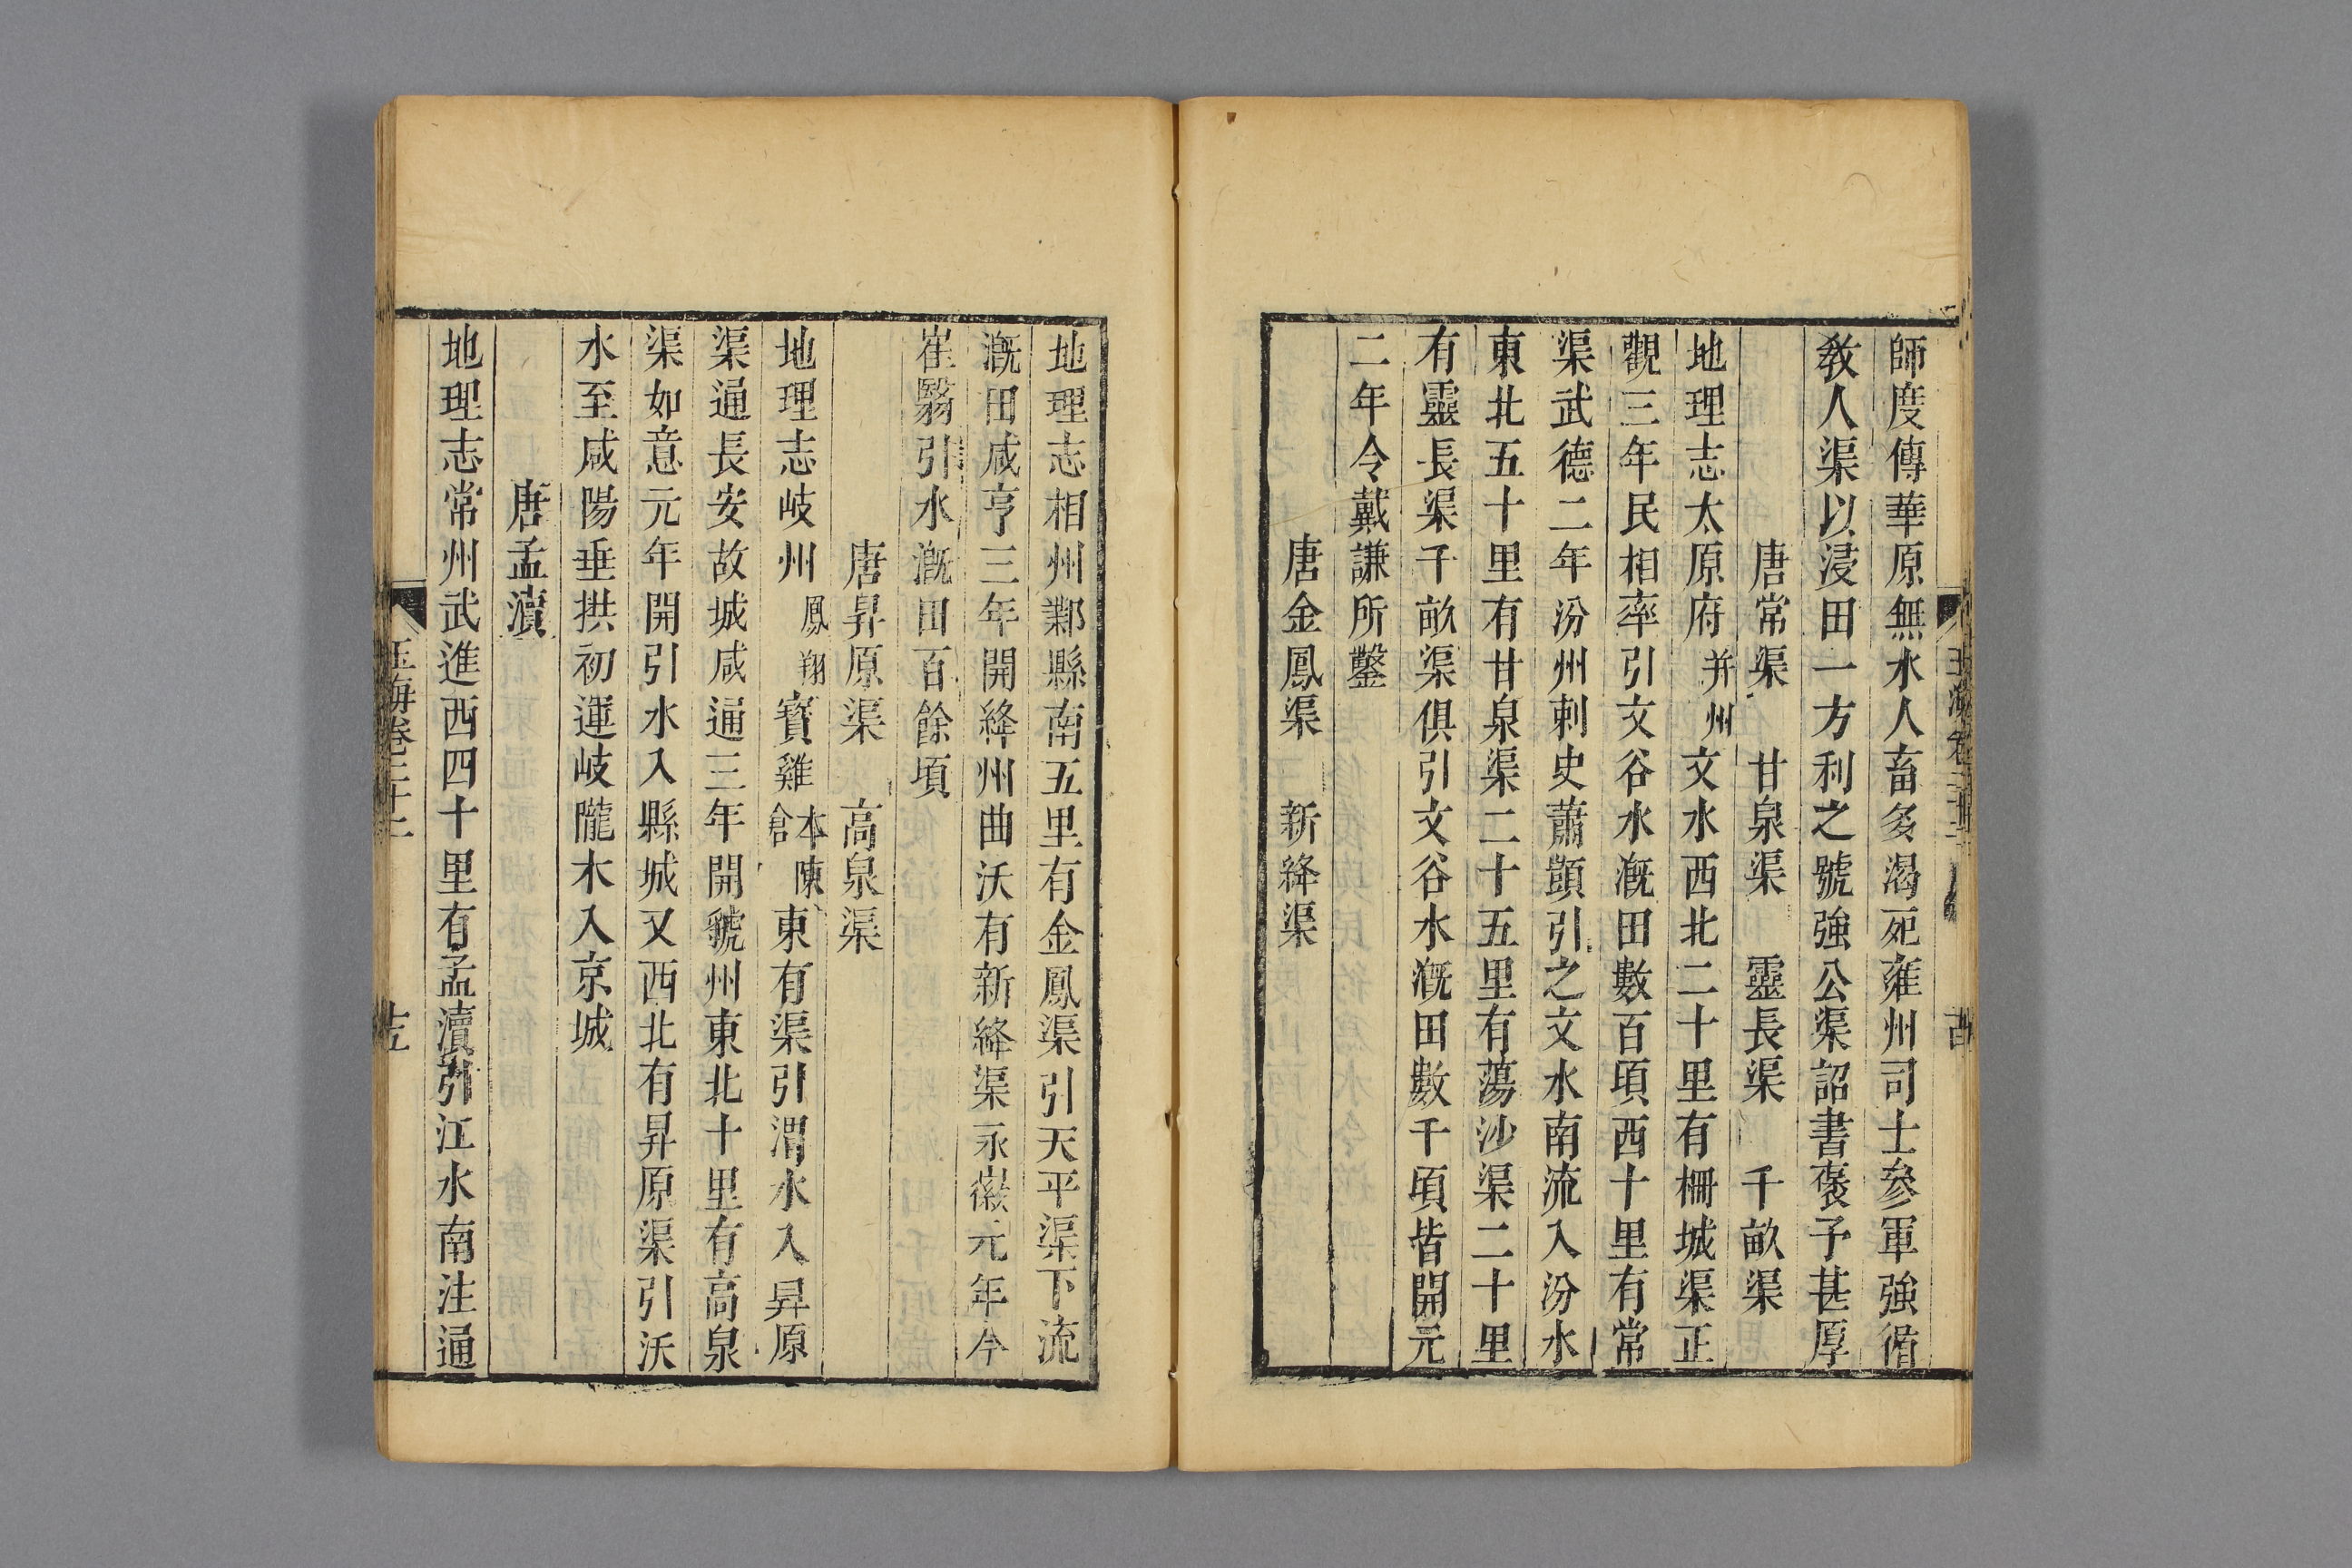 師度傳華原無水人畜多渴死雍州司士參軍強循
敎人渠以浸田一方利之號強公渠詔書褒予甚厚
唐常渠　甘泉渠　靈長渠　千畝渠
地理志太原府并州文水西北二十里有柵城渠正
觀三年民相率引文谷水漑田數百頃西十里有常
渠武德二年汾州刺史蕭顗引之文水南流入汾水
東北五十里有甘泉渠二十五里有蕩沙渠二十里
有靈長渠千畝渠俱引文谷水漑田數千頃皆開元
二年令戴謙所鑿
唐金鳳渠　新絳渠
地理志相州鄴縣南五里有金鳳渠引天平渠下流
漑田咸亨三年開絳州曲沃有新絳渠永徽元年令
崔翳引水漑田百餘頃
唐昇原渠　高泉渠
地理志岐州鳳翔寶雞本陳倉東有渠引渭水入昇原
渠通長安故城咸通三年開虢州東北十里有高泉
渠如意元年開引水入縣城又西北有昇原渠引汧
水至咸陽垂拱初運岐隴木入京城
唐孟瀆
地理志常州武進西四十里有孟瀆引江水南注通
玉海卷二十二
十五